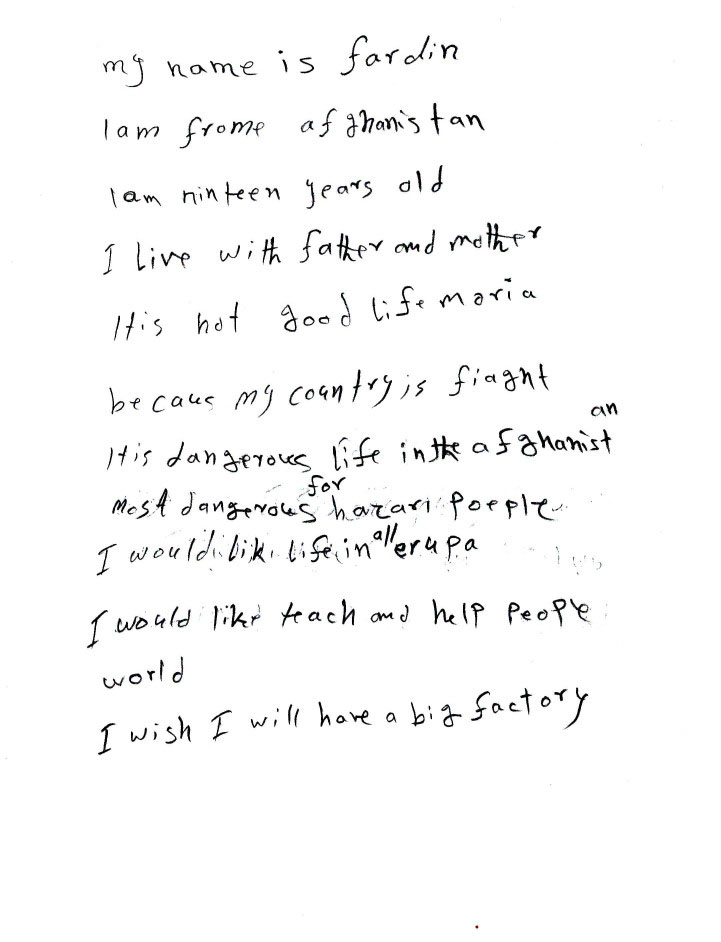 my name is fardin
I am frome afghanistan
I am ninteen years old
I live with father and mother
It is not good life moria
becaus my country is fiaght
It is dangerous life in the afghanistan
most dangerous for hazari poeple
I would lik life in all erupa
I would like teach and help people
world
I wish I will have a big factory